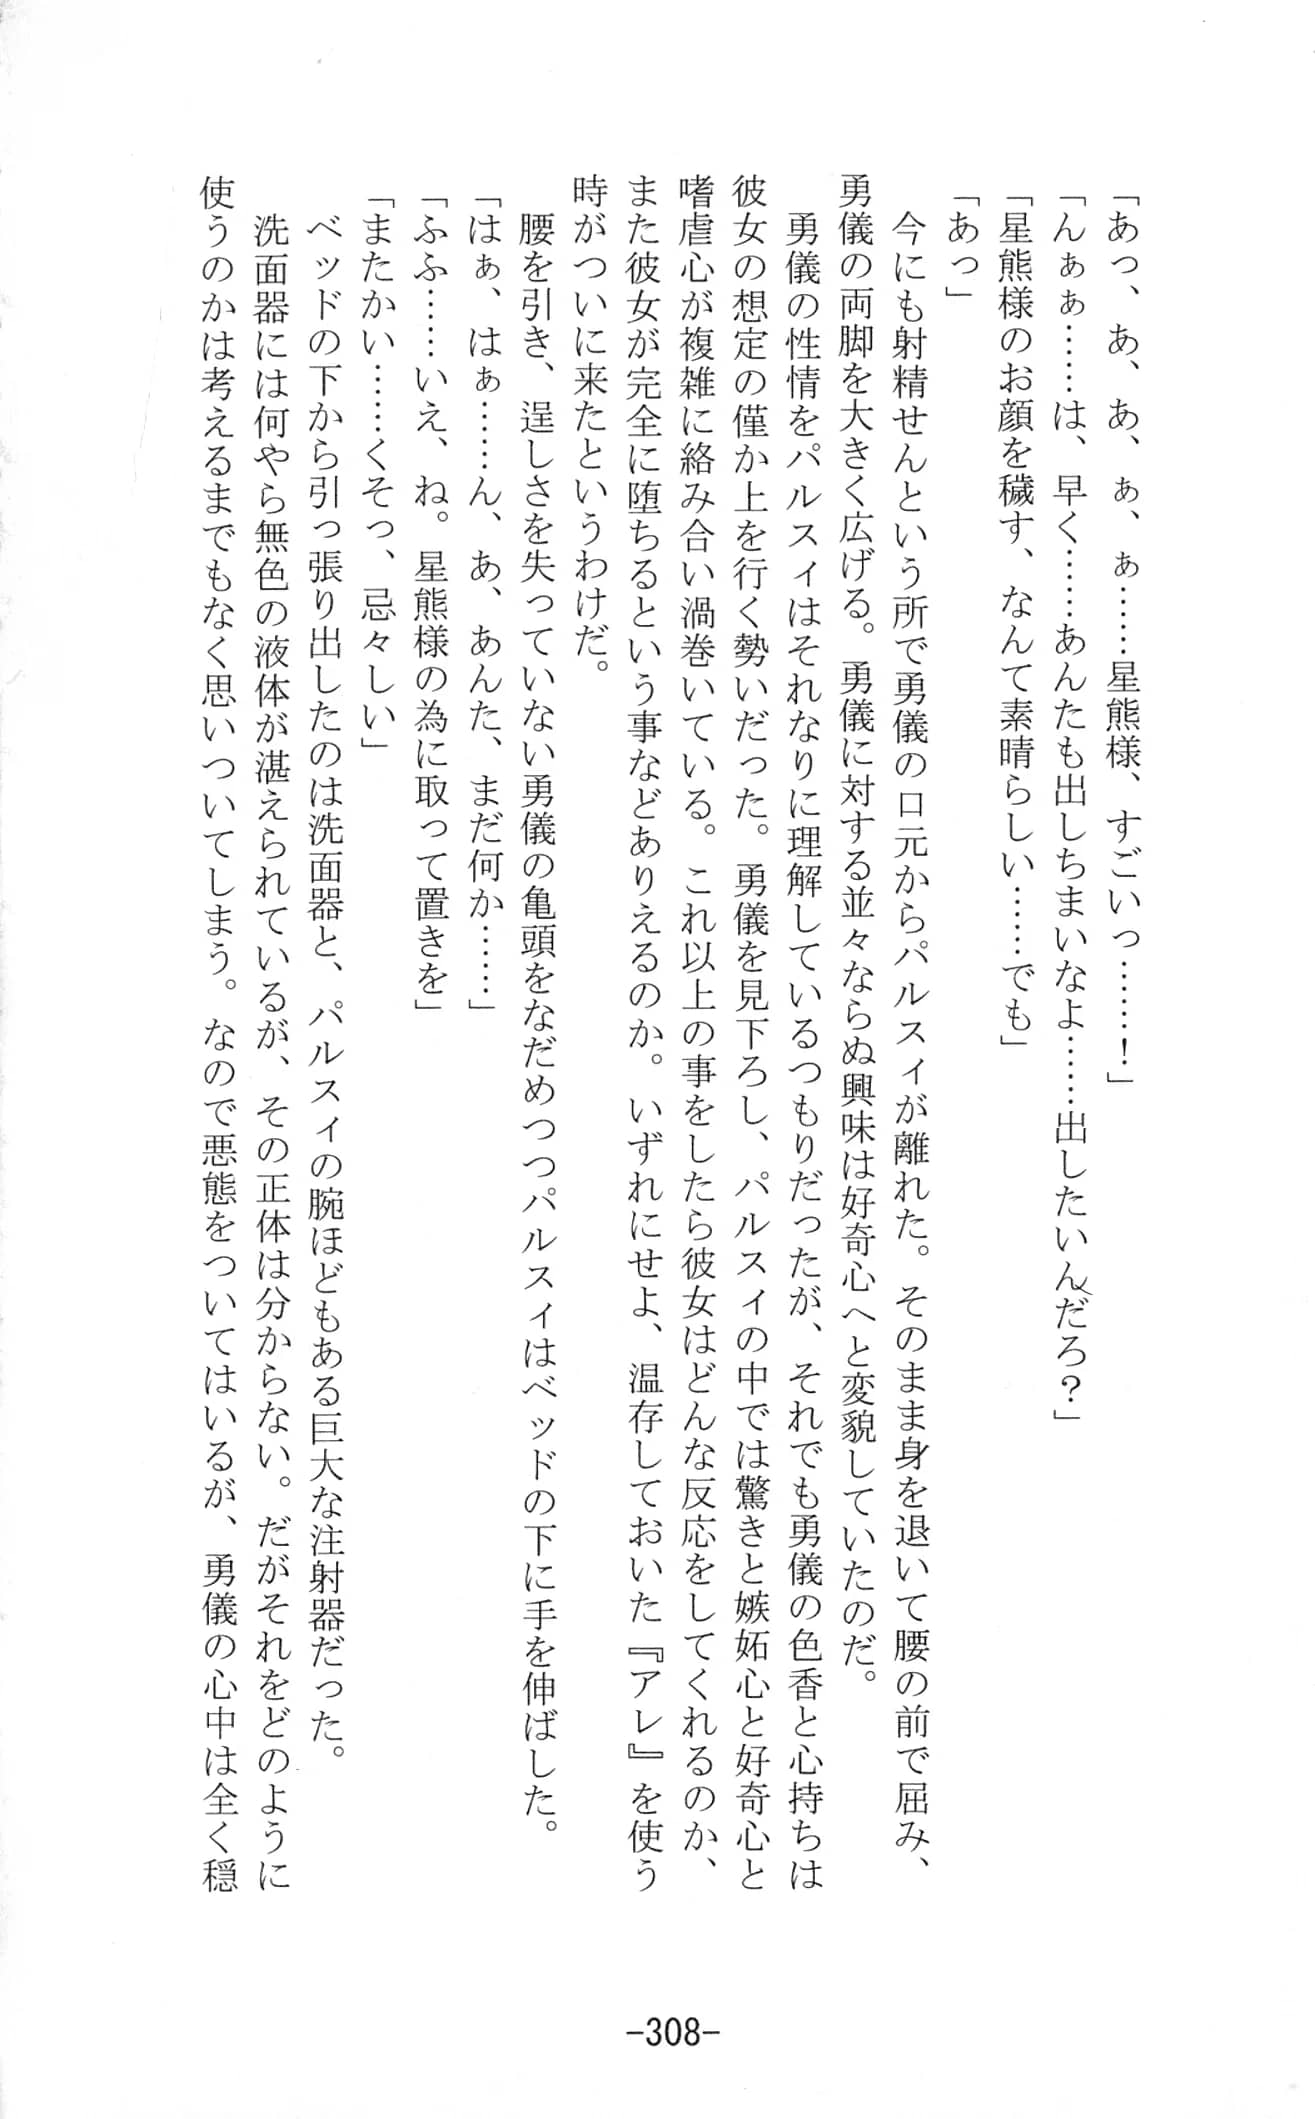 「あっ、あ、あ、ぁ、ぁ……星熊様、すごいっ……！」
「んぁぁ……は、早く……あんたも出しちまいなよ……出したいんだろ？」
「星熊様のお顔を穢す、なんて素晴らしい……でも」
「あっ」
　今にも射精せんという所で勇儀の口元からパルスィが離れた。そのまま身を退いて腰の前で屈み、
勇儀の両脚を大きく広げる。勇儀に対する並々ならぬ興味は好奇心へと変貌していたのだ。
　勇儀の性情をパルスィはそれなりに理解しているつもりだったが、それでも勇儀の色香と心持ちは
彼女の想定の僅か上を行く勢いだった。勇儀を見下ろし、パルスィの中では驚きと嫉妬心と好奇心と
嗜虐心が複雑に絡み合い渦巻いている。これ以上の事をしたら彼女はどんな反応をしてくれるのか、
また彼女が完全に堕ちるという事などありえるのか。いずれにせよ、温存しておいた『アレ』を使う
時がついに来たというわけだ。
　腰を引き、逞しさを失っていない勇儀の亀頭をなだめつつパルスィはベッドの下に手を伸ばした。
「はぁ、はぁ……ん、あ、あんた、まだ何か……」
「ふふ……いえ、ね。星熊様の為に取って置きを」
「またかい……くそっ、忌々しい」
　ベッドの下から引っ張り出したのは洗面器と、パルスィの腕ほどもある巨大な注射器だった。
　洗面器には何やら無色の液体が湛えられているが、その正体は分からない。だがそれをどのように
使うのかは考えるまでもなく思いついてしまう。なので悪態をついてはいるが、勇儀の心中は全く穏
-308-